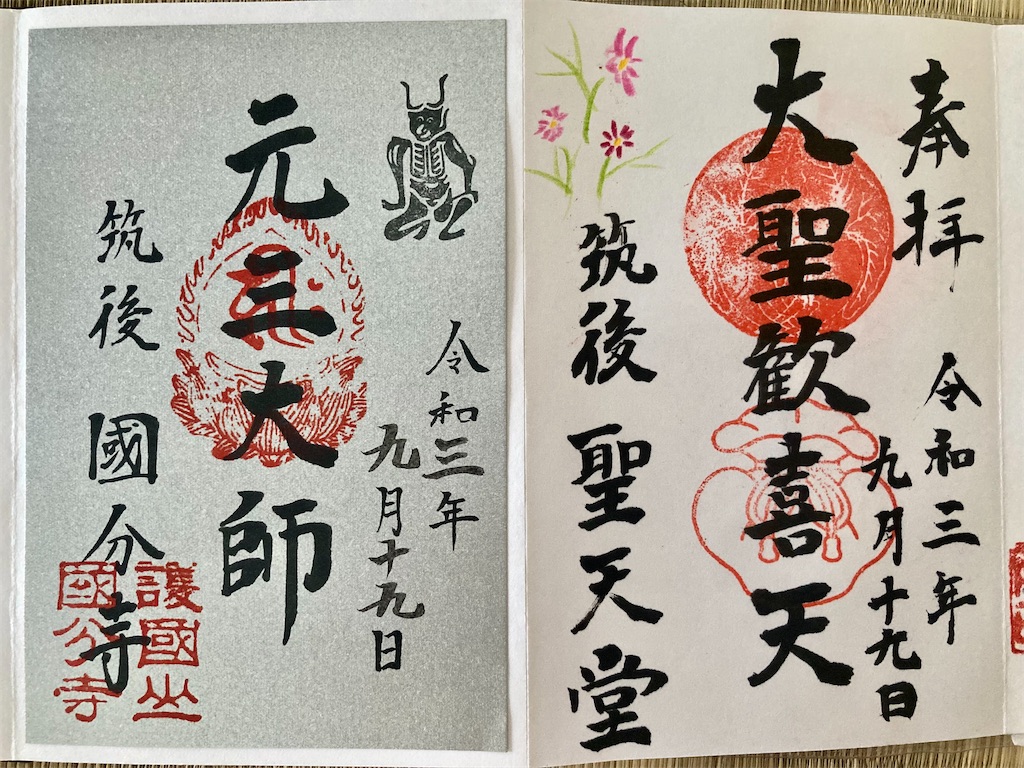 奉拝
令和三年
九月十九日
大聖歓喜天
筑後聖天堂
令和三年
九月十九日
元三大師
筑後國分寺
護國山
國分寺